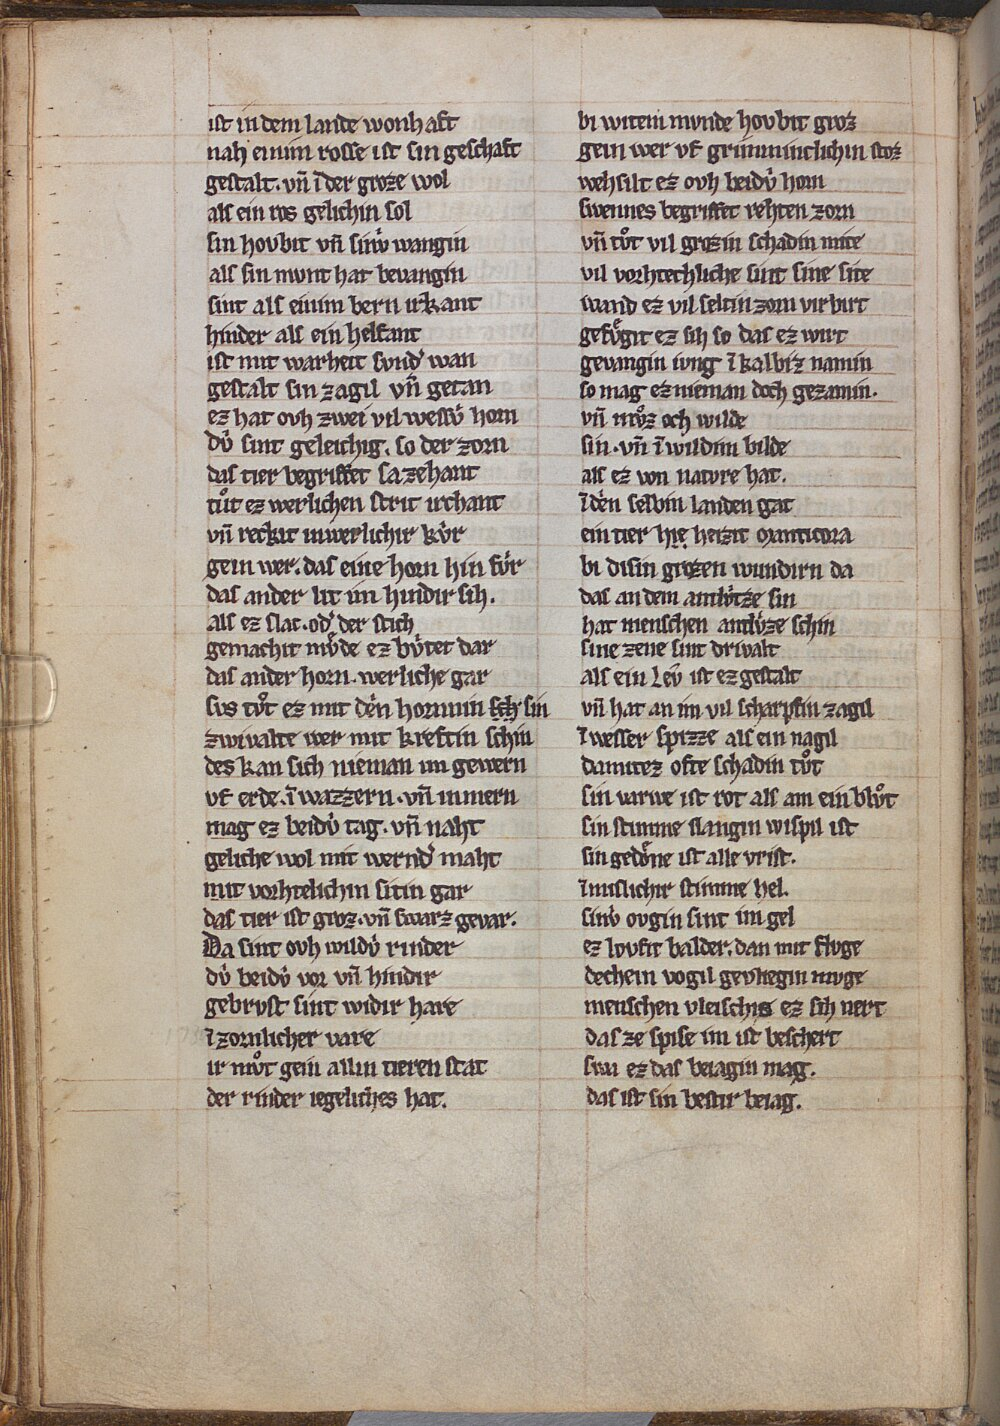 ist in dem lande wonhaft
nah einim rosse ist sin geschaft
gestalt. vn̄ ī der groze wol
als ein ros gelichin sol
sin hovbit vn̄ sinv̍ wangin
als sin mvnt hat bevangin
sint als einim bern irkant
hinder als ein helfant
ist mit warheit svnd͛ wan
gestalt sin zagil vn̄ getan
ez hat ovh zwei vil wessv̍ horn
dv̍ sint geleichig. so der zorn
das tier begriffet sa zehant
tv̊t ez werlichen strit irchant
vn̄ reckit inwerlichir kv̍r
gein wer. das eine horn hin fv̍r
das ander lit im hindir sih.
als ez slac. od͛ der stich
gemachit mv̍de ez bv̍tet dar
das ander horn. werliche gar
svs tv̊t ez mit den hornnin sch sin
zwivalte wer mit kreftin schin
des kan sich nieman im gewern
vf erde. ī wazzern. vn̄ inmern
mag ez beidv̍ tag. vn̄ naht
geliche wol mit wernd͛ maht
mit vorhtelichin sitin gar
das tier ist groz. vn̄ swarz gevar.
Da sint ovh wildv̍ rinder
dv̍ beidv̍ vor vn̄ hindir
gebrvst sint widir hare
ī zornlicher vare
ir mv̊t gein allin tieren stat
der rinder iegeliches hat.
bi witeim mvnde hovbit groz
gein wer vf grimminclichin stoz
wehsilt ez ovh beidv̍ horn
swennes begriffet rehten zorn
vn̄ tv̊t vil grozin schadin mite
vil vorhtechliche sint sine site
wand ez vil seltin zorn virbirt
gefv̊git ez sih so das ez wirt
gevangin ivng ī kalbiz namin
so mag ez nieman doch gezamin.
vn̄ mv̊z och wilde
sin. vn̄ ī wildim bilde
als ez von natvre hat.
ī den selbin landen gat
ein tier hie heizit manticora
bi disin grozen wundirn da
das an dem antlv̍tze sin
hat menschen antlv̍ze schin
sine zene sint drivalt
als ein Lev̍ ist ez gestalt
vn̄ hat an im vil scharpfin zagil
ī wesser spizze als ein nagil
damitez ofte schadin tv̊t
sin varwe ist rot als am ein blv̊t
sin stimme slangin wispil ist
sin gedone ist alle vrist.
ī mislichir stimme hel.
sinv̍ ovgin sint im gel
ez lovfit balder. dan mit flvge
dechein vogil gevliegin mvge
menschen vleischis ez sih nert
das ze spise im ist beschert
swi ez das beiagin mag.
das ist sin bestir beiag.